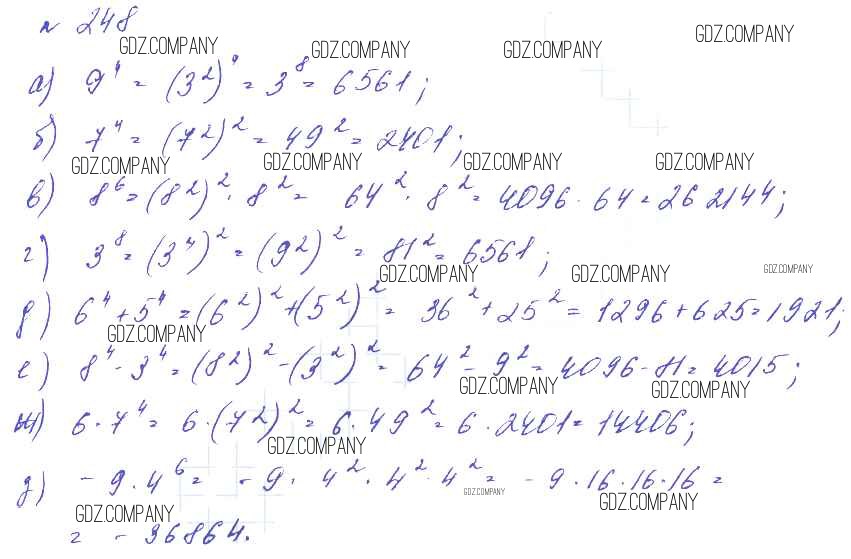 № 248
GDZ.COMPANY GDZ.COMPANY GDZ.COMPANY GDZ.COMPANY
а) 9⁴ = (3²)⁴ = 3⁸ = 6561;
б) 7⁴ = (7²)² = 49² = 2401;
GDZ.COMPANY GDZ.COMPANY GDZ.COMPANY GDZ.COMPANY
в) 8⁶ = (8²)² · 8² = 64² · 8² = 4096 · 64 = 262144;
г) 3⁸ = (3⁴)² = (9²)² = 81² = 6561;
GDZ.COMPANY GDZ.COMPANY GDZ.COMPANY
д) 6⁴ + 5⁴ = (6²)² + (5²)² = 36² + 25² = 1296 + 625 = 1921;
GDZ.COMPANY
е) 8⁴ - 3⁴ = (8²)² - (3²)² = 64² - 9² = 4096 - 81 = 4015;
GDZ.COMPANY GDZ.COMPANY
ж) 6 · 7⁴ = 6 · (7²)² = 6 · 49² = 6 · 2401 = 14406;
GDZ.COMPANY
з) - 9 · 4⁶ = - 9 · 4² · 4² · 4² = - 9 · 16 · 16 · 16 =
GDZ.COMPANY GDZ.COMPANY GDZ.COMPANY
= - 36864.